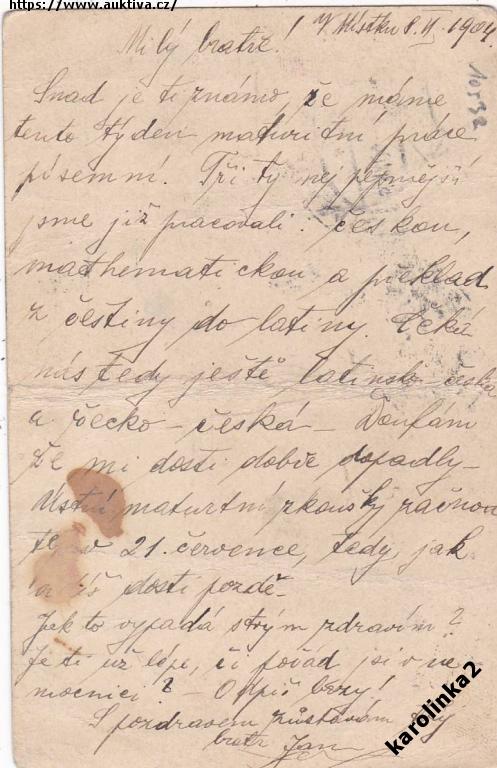 https://www.auktiva.cz/
V Místku 8. VI. 1904.
Milý bratře!
10592
Snad je ti známo, že máme
tento týden maturitní práce
písemní. Tři ty nejpějnější
jsme již pracovali: českou,
mathematickou a překlad
z češtiny do latiny. Čeká
nás tedy ještě latinsko-česká
a řecko-česká - Doufám
že mi dosti dobře dopadly-
Ústní maturtní zkoušky začnou
21. července, tedy jak
dosti pozdě-
Jak to vypadá s tvým zdravím?
Je ti už lépe, či pořád jsi v ne
mocnici? - Odpiš brzy!
S pozdravem zůstávám tvůj
bratr Jan
karolinka2